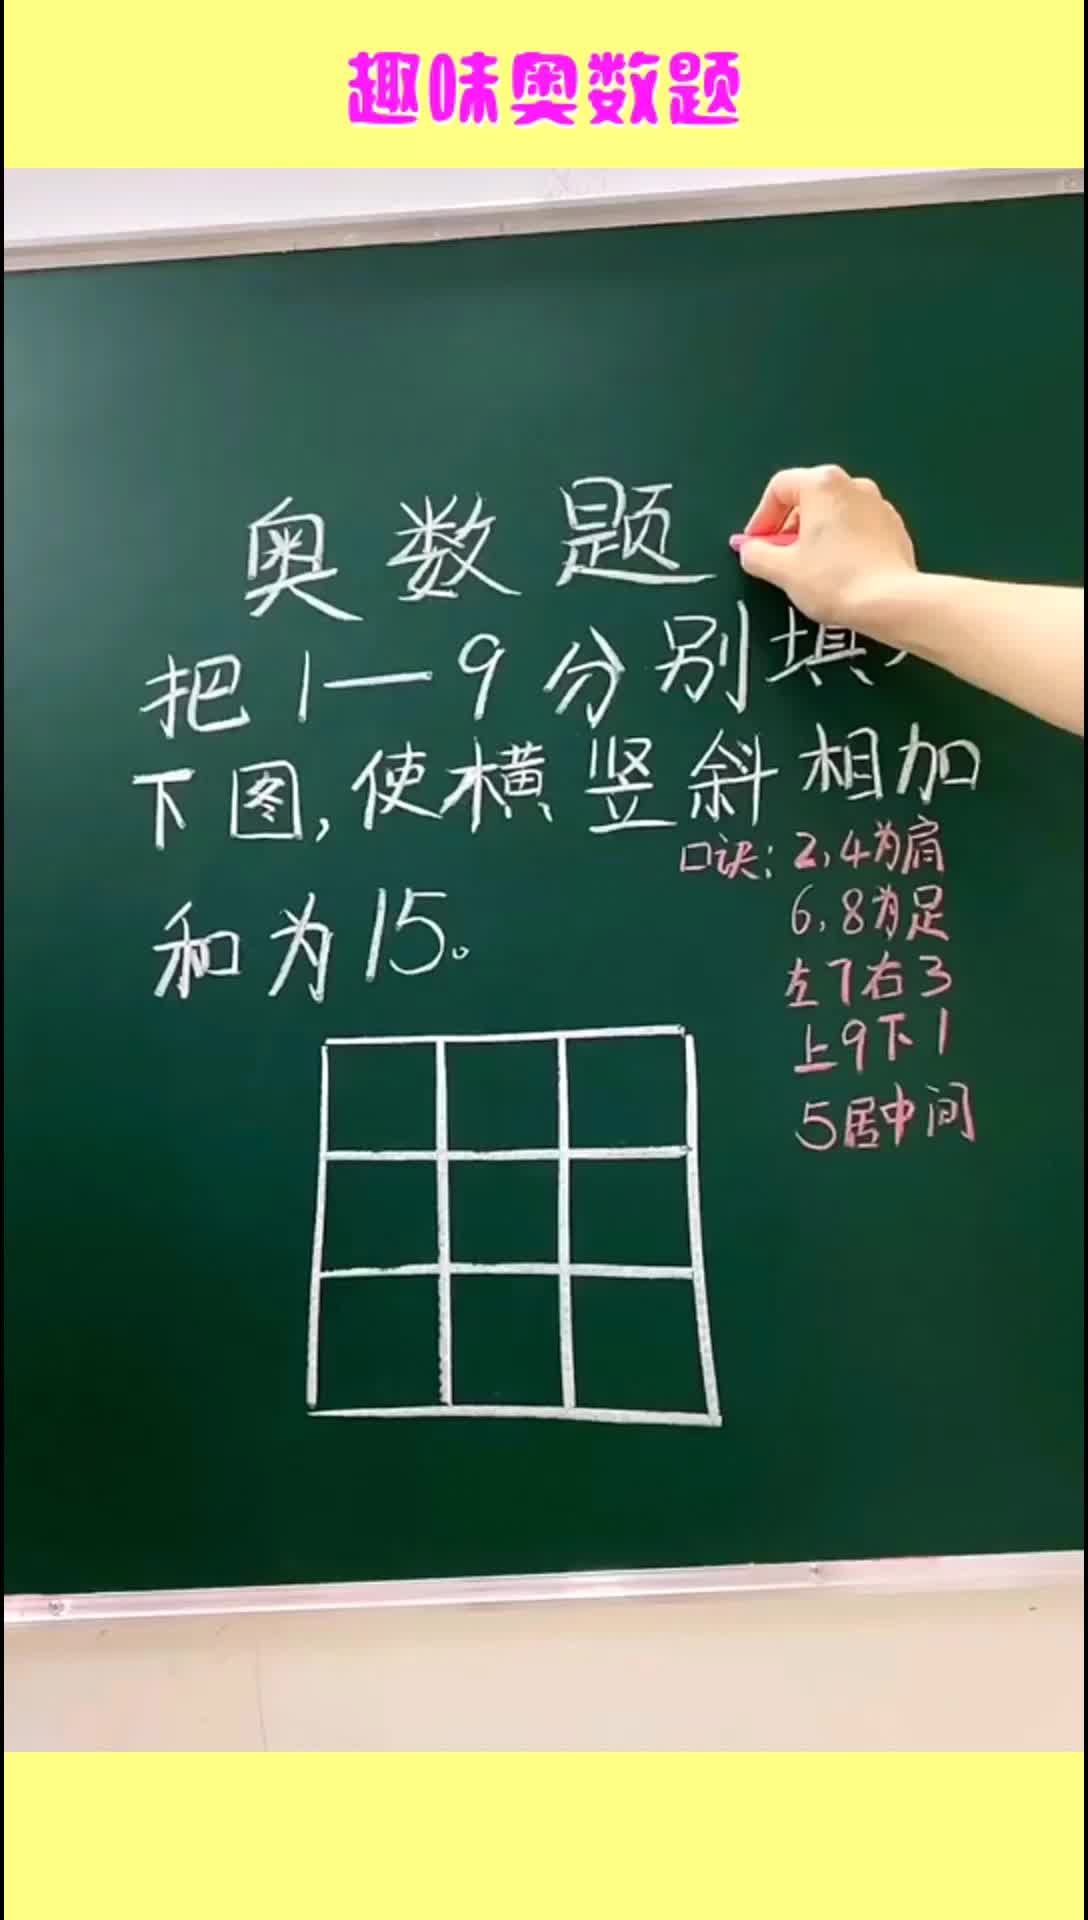 趣味奥数题
奥数题
把1—9分别填
下图,使横竖斜相加
和为15。
口诀:2,4为肩
6,8为足
左7右3
上9下1
5居中间